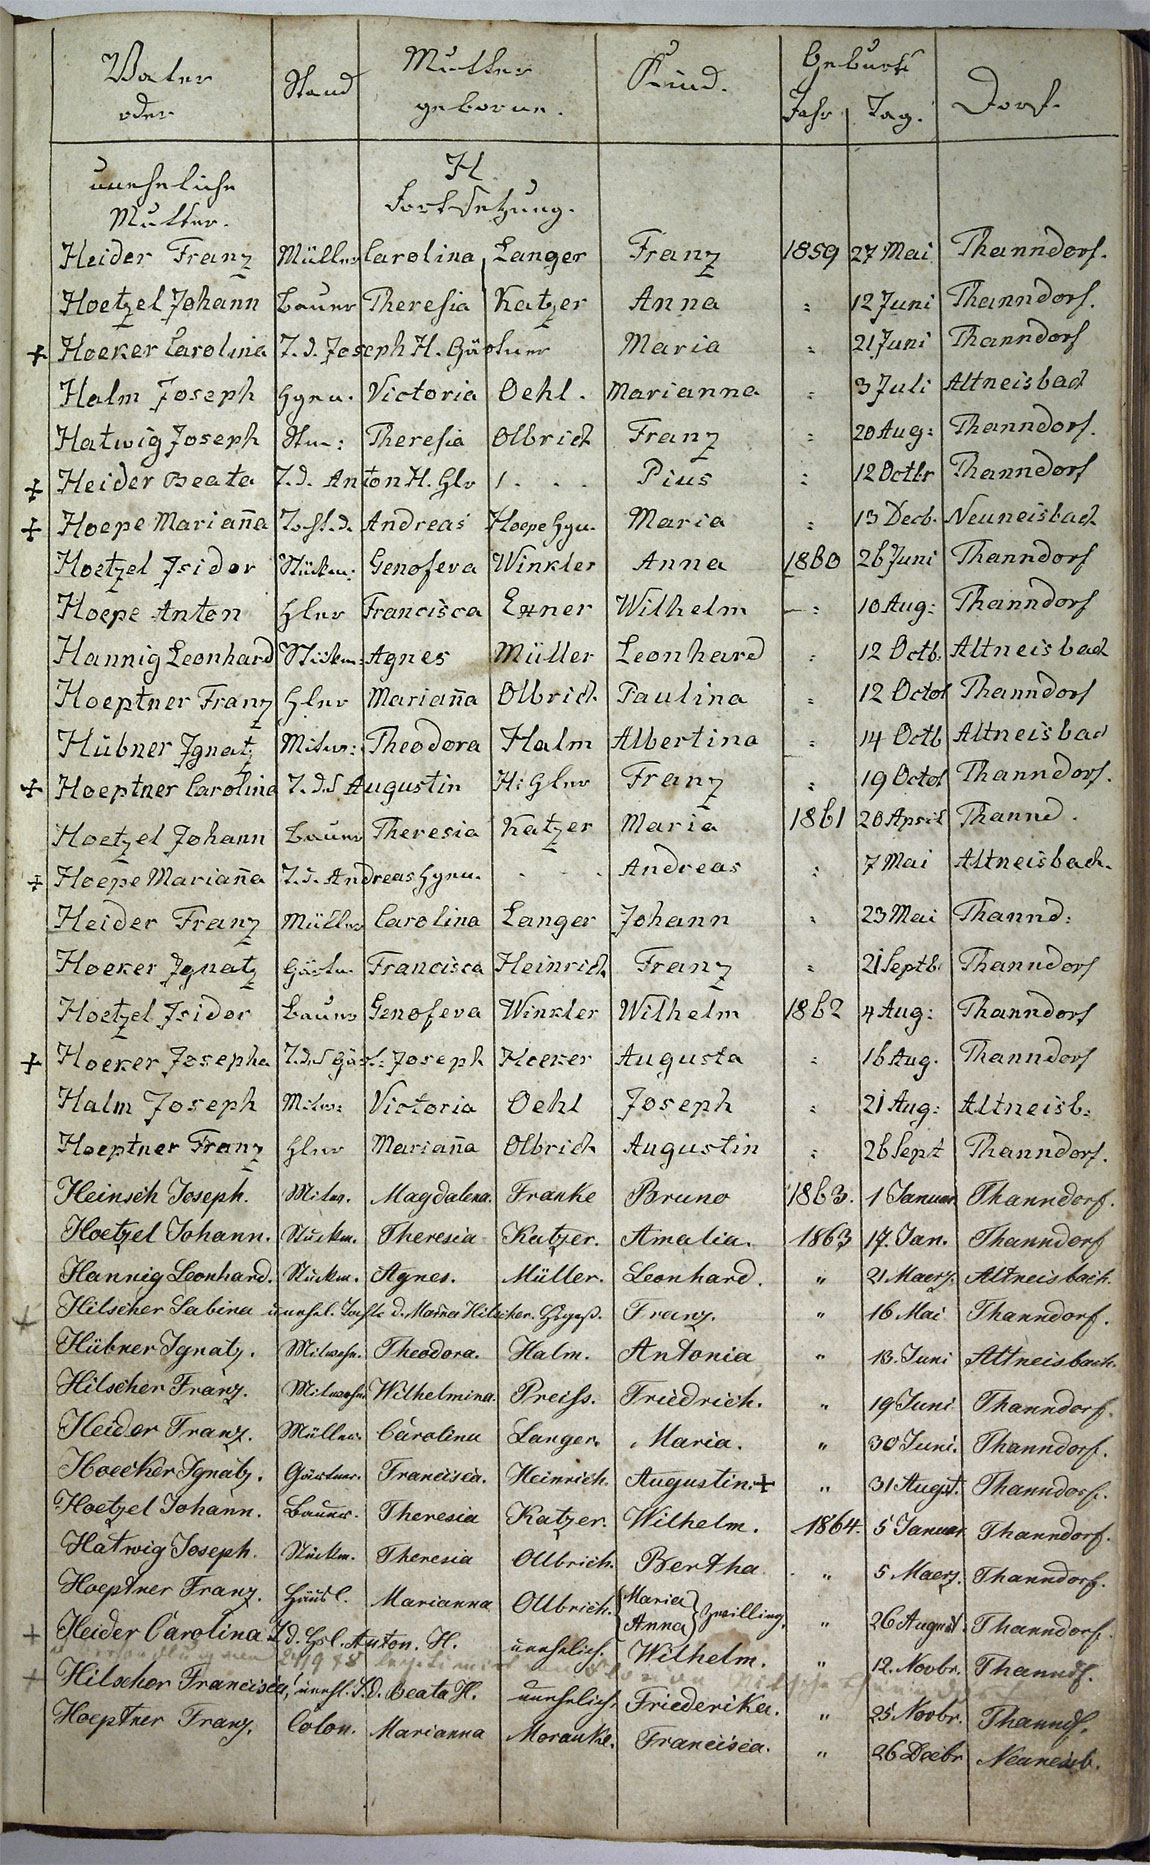 Vater Stand Mutter Kind. Geburts Dorf.
oder geborne. Jahr Tag.
uneheliche H
Mutter. Fortsetzung.
Heider Franz Müller Carolina Langer Franz 1859 27 Mai Thanndorf.
Hoetzel Johann Bauer Theresia Katzer Anna : 12 Juni Thanndorf.
+ Hoeker Carolina T. d. Joseph H. Gärtner Maria : 21 Juni Thanndorf
Halm Joseph Victoria Oehl. Marianna : 3 Juli Altneisbach
Hatwig Joseph Stm: Theresia Olbrich Franz : 20 Aug: Thanndorf.
+ Heider Beata T. d. Anton H. Glr Pius : 12 Octbr Thanndorf
+ Hoepe Mariaña Tcht. d. Andreas Hoepe Maria : 13 Decb. Neuneisbach
Hoetzel Isidor Stückm: Genofeva Winkler Anna 1860 26 Juni Thanndorf
Hoepe Anton Francisca Exner Wilhelm : 10 Aug: Thanndorf
Hannig Leonhard Stückm: Agnes Müller Leonhard : 12 Octb. Altneisbach
Hoeptner Franz Mariaña Olbrich Paulina : 12 Octob Thanndorf
Hübner Ignatz Mitw: Theodora Halm Albertina : 14 Octb Altneisbach
+ Hoeptner Carolina T. d. Augustin H: Franz : 19 Octob Thanndorf.
Hoetzel Johann Bauer Theresia Katzer Maria 1861 20 April Thannd.
+ Hoepe Mariaña T. d. Andreas . . . Andreas : 7 Mai Altneisbach.
Heider Franz Müller Carolina Langer Johann : 23 Mai Thannd:
Hoeker Ignatz Gärtn. Francisca Heinrich Franz : 21 Septb. Thanndorf
Hoetzel Isidor Bauer Genofeva Winkler Wilhelm 1862 4 Aug: Thanndorf
+ Hoeker Josepha T. d. Joseph Hoeker Augusta : 16 Aug. Thanndorf
Halm Joseph Mitw: Victoria Oehl Joseph : 21 Aug: Altneisb:
Hoeptner Franz Mariaña Olbrich Augustin : 26 Sept Thanndorf.
Heinsch Joseph. Mitw. Magdalena. Franke Bruno 1863. 1 Januar. Thanndorf.
Hoetzel Johann. Stückm. Theresia Katzer. Amalia. 1863 17. Jan. Thanndorf
Hannig Leonhard. Stückm. Agnes. Müller. Leonhard. " 21 Maerz. Altneisbach.
+ Hilscher Sabina unehel. Tocht. d. Hilscher. Franz. " 16 Mai Thanndorf.
Hübner Ignatz. Mitwohn. Theodora. Halm. Antonia " 13. Juni Altneisbach.
Hilscher Franz. Mitwohn Wilhelmina. Preiss. Friedrich. " 19 Juni Thanndorf.
Heider Franz. Müller. Carolina Langer. Maria. " 30 Juni. Thanndorf.
Hoecker Ignatz. Gärtner. Francisca. Heinrich. Augustin. + " 31 August. Thanndorf.
Hoetzel Johann. Bauer. Theresia Katzer. Wilhelm. 1864. 5 Januar. Thanndorf.
Hatwig Joseph. Stückm. Theresia Ollbrich. Bertha " 5 Maerz. Thanndorf.
Hoeptner Franz. Häusl. Marianna Ollbrich. Maria Anna Zwilling. " 26 August. Thanndorf.
+ Heider Carolina T. d. Hsl. Anton. H. unehelich. Wilhelm. " 12. Novbr. Thanndf.
+ Hilscher Francisca, unehl. T. d. Beata H. unehelich. Friederika. " 25 Novbr. Thanndf.
Hoeptner Franz. Colon. Marianna Morauke. Francisca. " 26 Decbr Neuneisb.